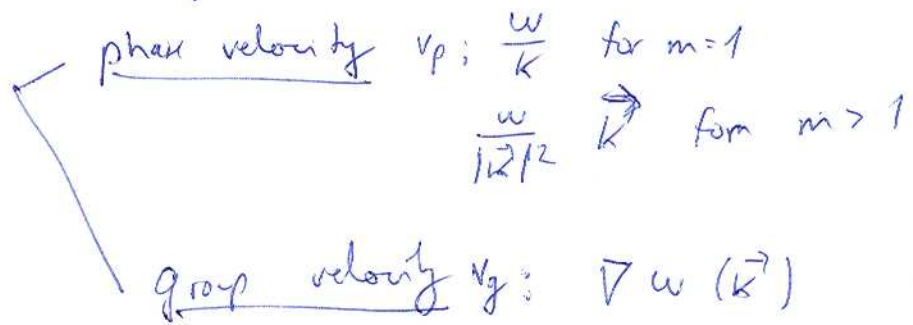 phase velocity v_p : \frac{\omega}{k} for m=1
\frac{\omega}{|\vec{k}|^2} \vec{k} form m > 1
group velocity v_g : ∇ω(\vec{k})